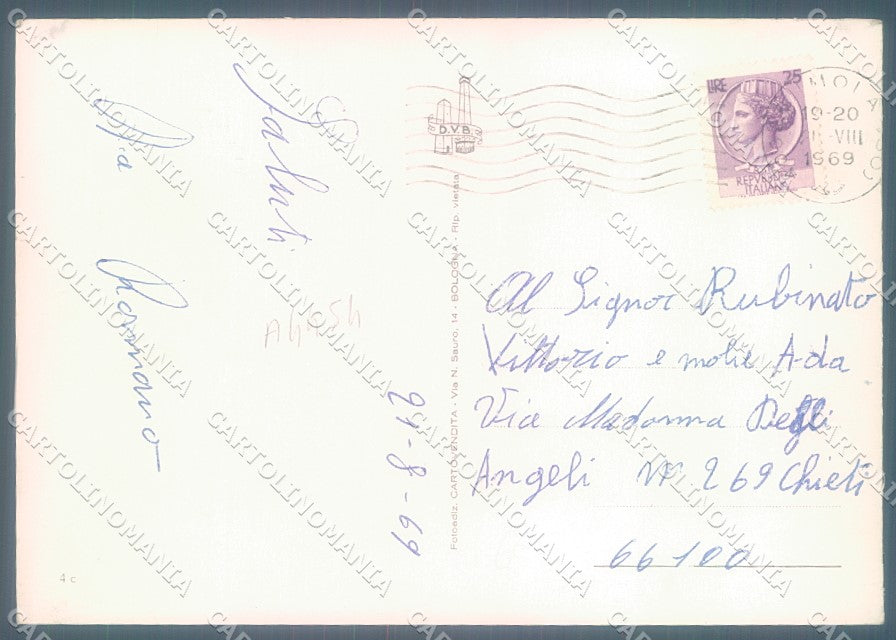 Saluti
Da
Romano
21-8-69
A4454
4 c
D.V.B.
Fotoediz. CARTOLVENDITA - Via N. Sauro, 14 - BOLOGNA - Rip. vietata
LIRE 25
REPVBBLICA
ITALIANA
19-20
VIII
1969
Al Signor Rubinato
Vittorio e molie Ada
Via Madonna Degli
Angeli N° 269 Chieti
66100
CARTOLINOMANIA